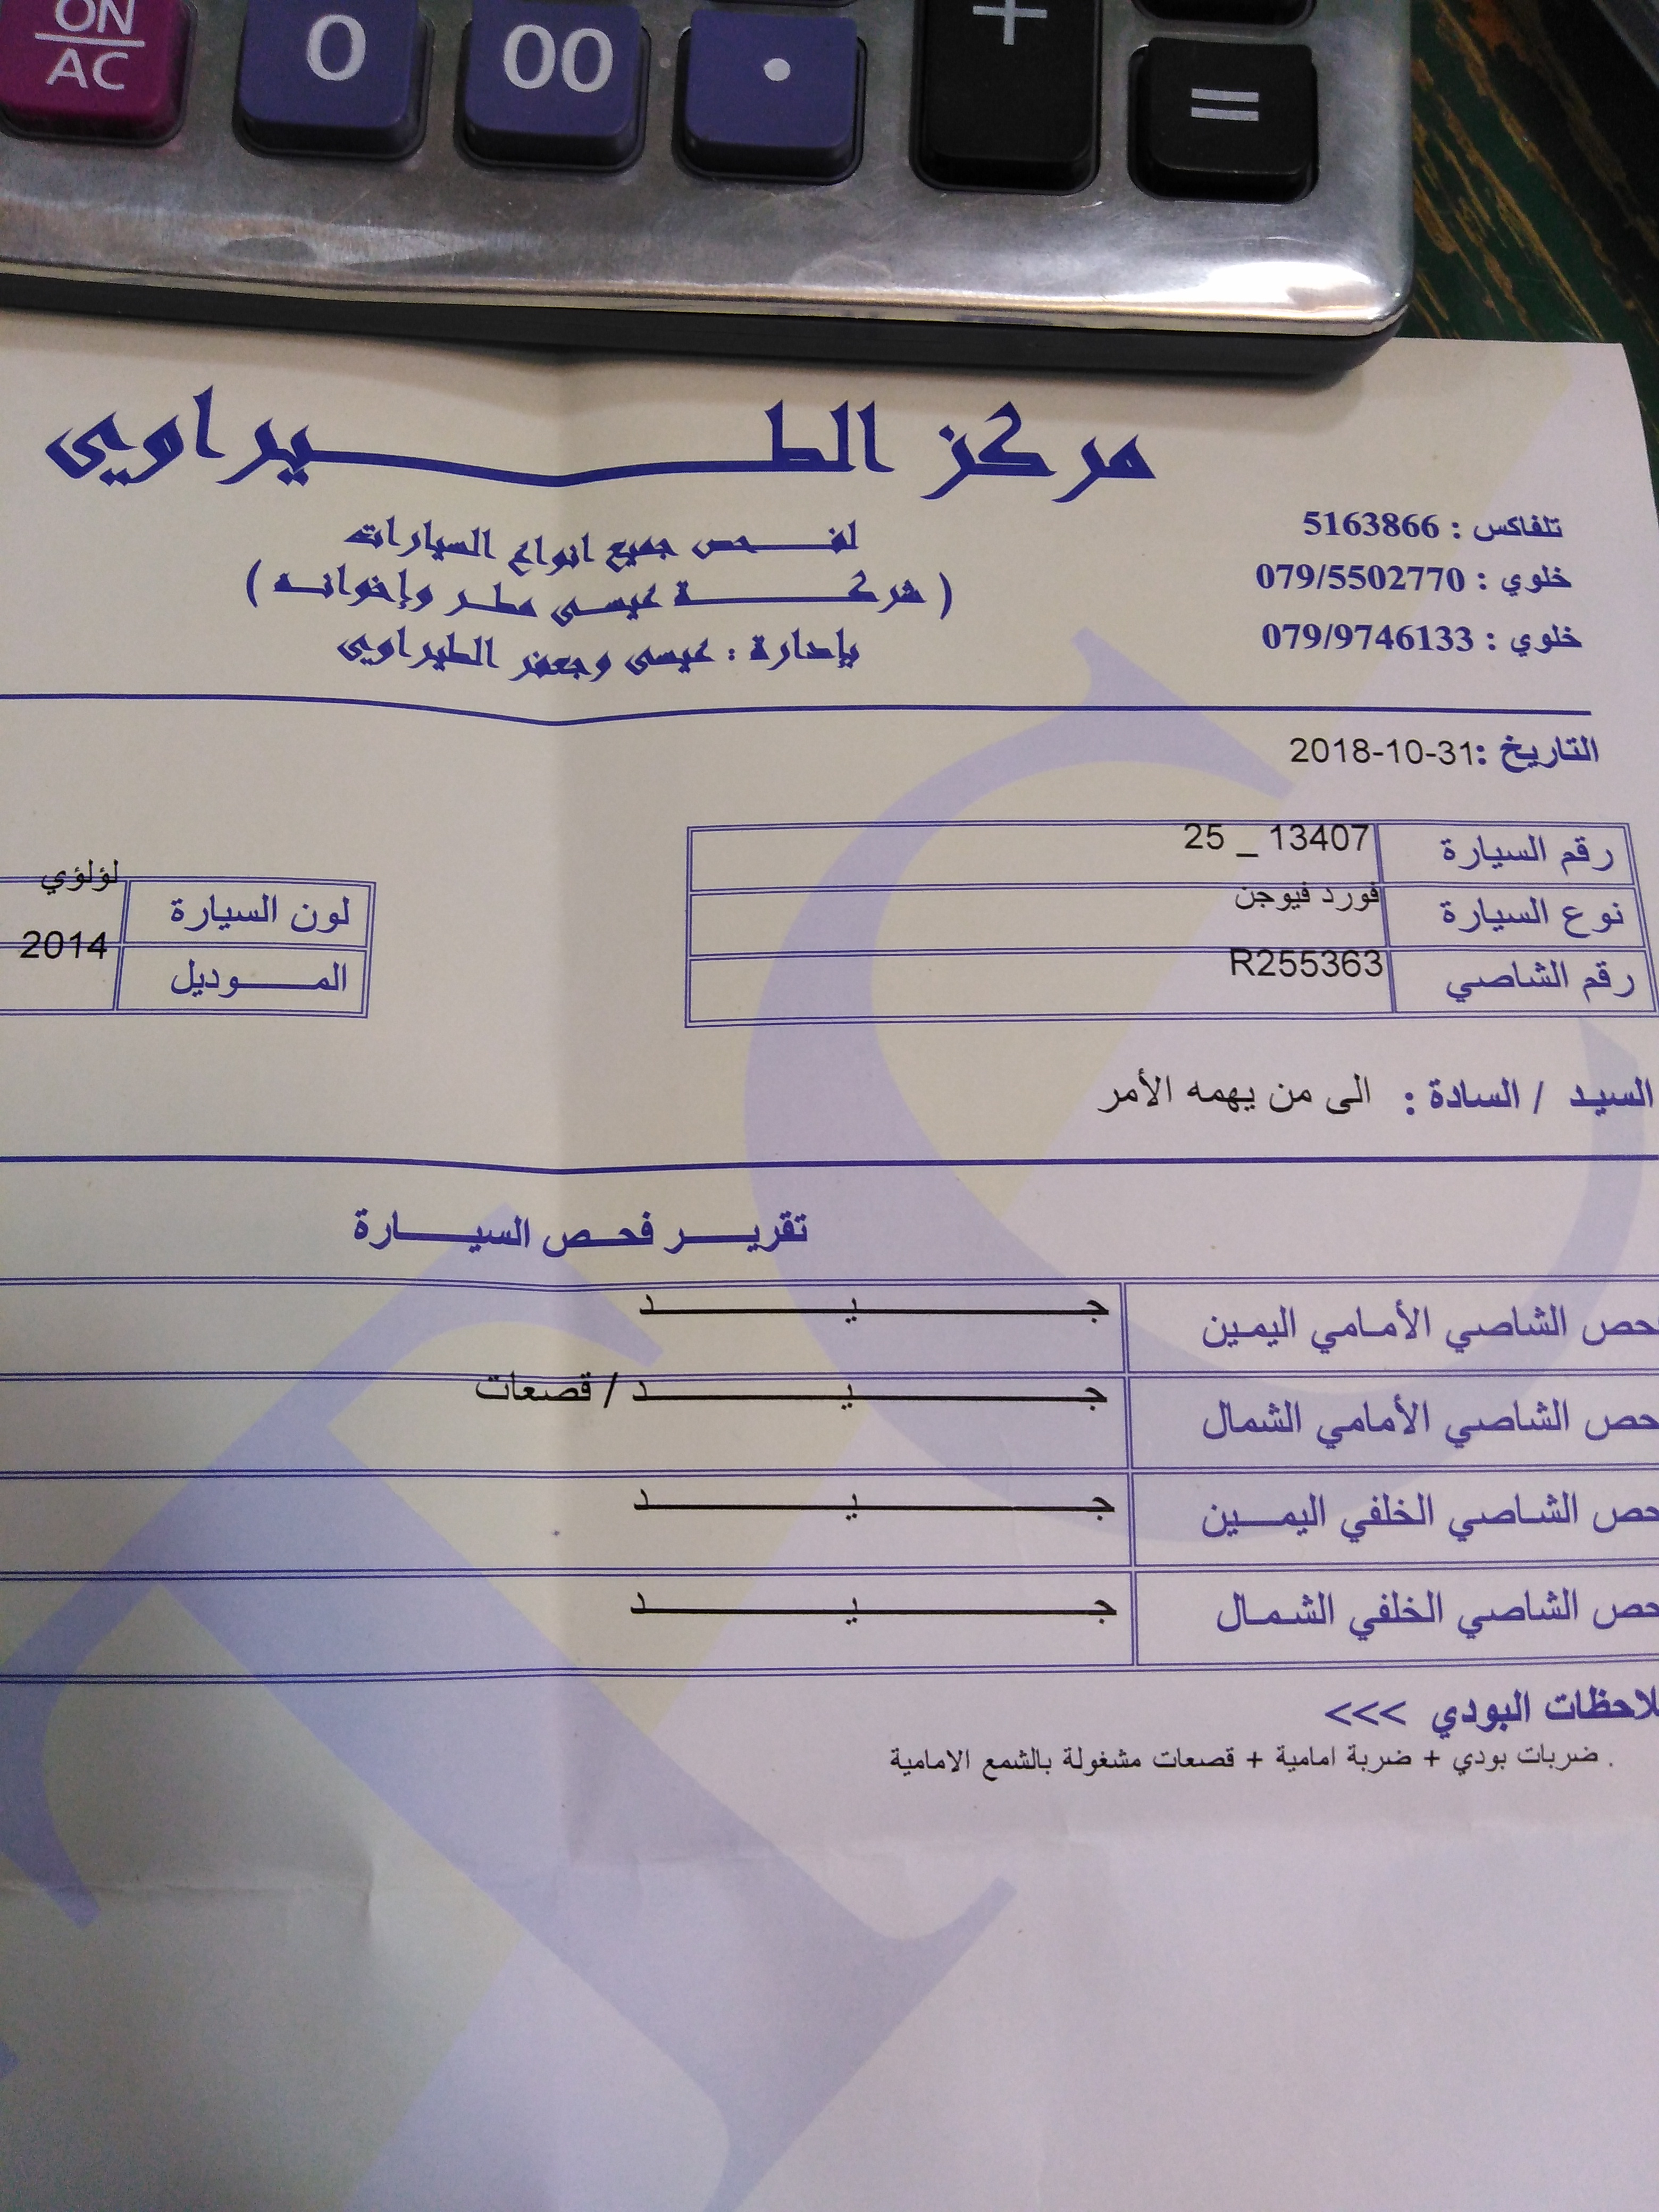 ON
AC
0
00
.
+
=
مركز الطيراوي
لفحص جميع انواع السيارات
( شركة عيسى مطر وإخوانه )
بإدارة : عيسى وجعفر الطيراوي
تلفاكس : 5163866
خلوي : 079/5502770
خلوي : 079/9746133
التاريخ :31-10-2018
رقم السيارة 25 _ 13407
نوع السيارة فورد فيوجن
رقم الشاصي R255363
لون السيارة لؤلؤي
الموديل 2014
السيد / السادة : الى من يهمه الأمر
تقرير فحص السيارة
حص الشاصي الأمامي اليمين جيد
حص الشاصي الأمامي الشمال جيد / قصعات
حص الشاصي الخلفي اليمين جيد
حص الشاصي الخلفي الشمال جيد
لاحظات البودي >>>
. ضربات بودي + ضربة امامية + قصعات مشغولة بالشمع الامامية